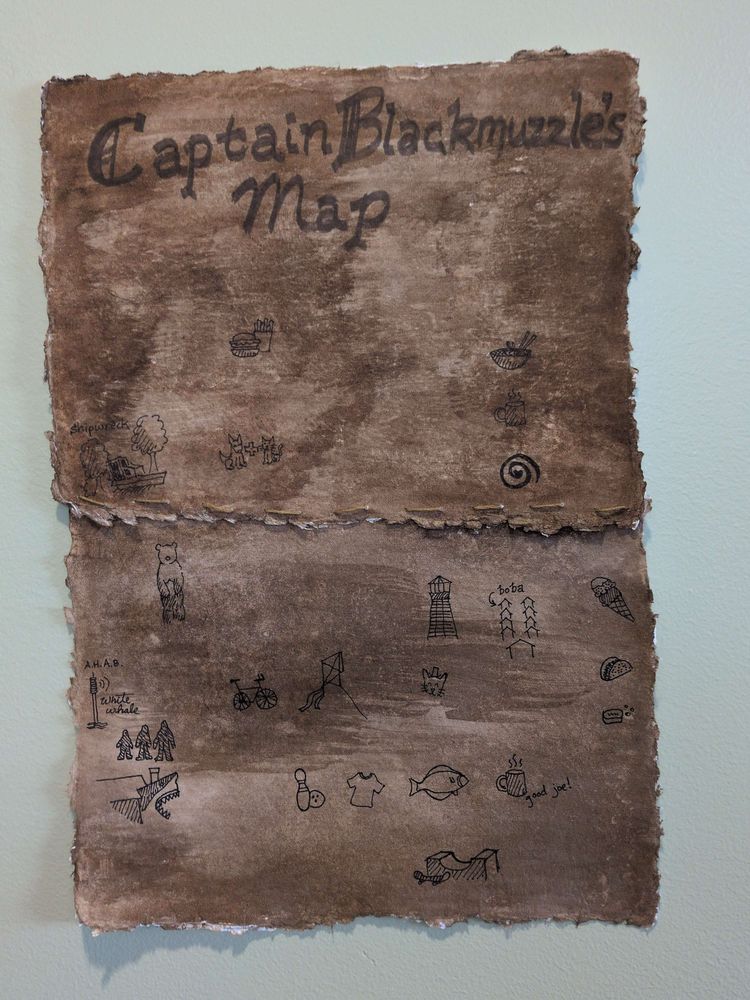 Captain Blackmuzzle's
Map
Shipwreck
boba
A.H.A.B.
White
whale
good joe!